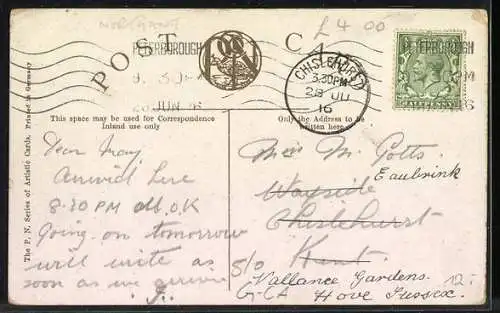 £4 00
POST CARD
PETERBOROUGH
9. 30 PM
26 JUN. 16
CHISLEHURST
3.30PM
28 JU
16
PETERBOROUGH
HALFPENNY
This space may be used for Correspondence
Inland use only
Only the Address to be
written here
The P. N. Series of Artistic Cards. Printed in Germany
Dear May
Arrived here
8.30 PM all O.K
Going on tomorrow
will write as
soon as we arrive
Miss M. Potts
Eaubrink
Wayside
Chislehurst
Kent.
Vallance Gardens.
Hove Sussex.
12.-